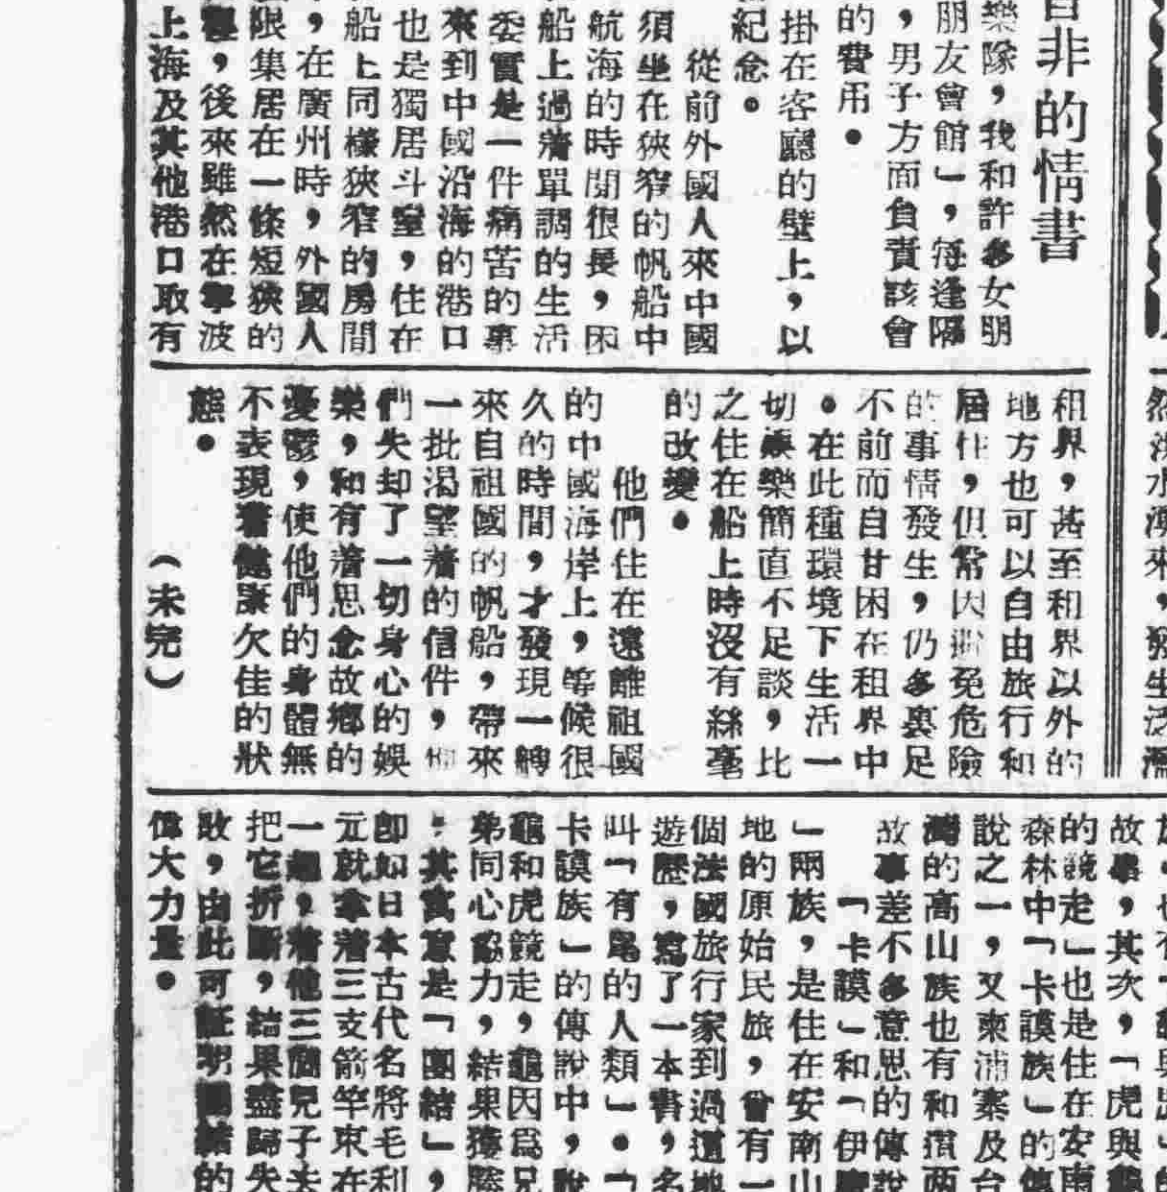 自非的情書
樂隊，我和許多女朋
朋友會館」，每逢隔
，男子方面負責該會
的費用。
掛在客廳的壁上，以
紀念。
從前外國人來中國
須坐在狹窄的帆船中
航海的時間很長，困
船上過着單調的生活
委實是一件痛苦的事
來到中國沿海的港口
也是獨居斗室，住在
船上同樣狹窄的房間
，在廣州時，外國人
限集居在一條短狹的
，後來雖然在寧波
上海及其他港口取有
租界，甚至租界以外的
地方也可以自由旅行和
居住，但常因避免危險
的事情發生，仍多裹足
不前而自甘困在租界中
。在此種環境下生活一
切娛樂簡直不足談，比
之住在船上時沒有絲毫
的改變。
他們住在遠離祖國
的中國海岸上，等候很
久的時間，才發現一轉
來自祖國的帆船，帶來
一批渴望着的信件，他
們失却了一切身心的娛
樂，和有着思念故鄉的
憂鬱，使他們的身體無
不表現着健康欠佳的狀
態。
（未完）
然洪水湧來，發生泛濫
故事，其次，「虎與龜
的競走」也是住在安南
森林中「卡謨族」的傳
說之一，又柬浦寨及台
灣的高山族也有和這兩
故事差不多意思的傳說
「卡謨」和「伊
」兩族，是住在安南山
地的原始民族，曾有一
個法國旅行家到過這地
遊歷，寫了一本書，名
叫「有尾的人類」。「
卡謨族」的傳說中，說
龜和虎競走，龜因爲兄
弟同心協力，結果獲勝
，其寓意是「團結」，
卽如日本古代名將毛利
元就拿着三支箭竿束在
一起，着他三個兒子去
把它折斷，結果盡歸失
敗，由此可証明團結的
偉大力量。